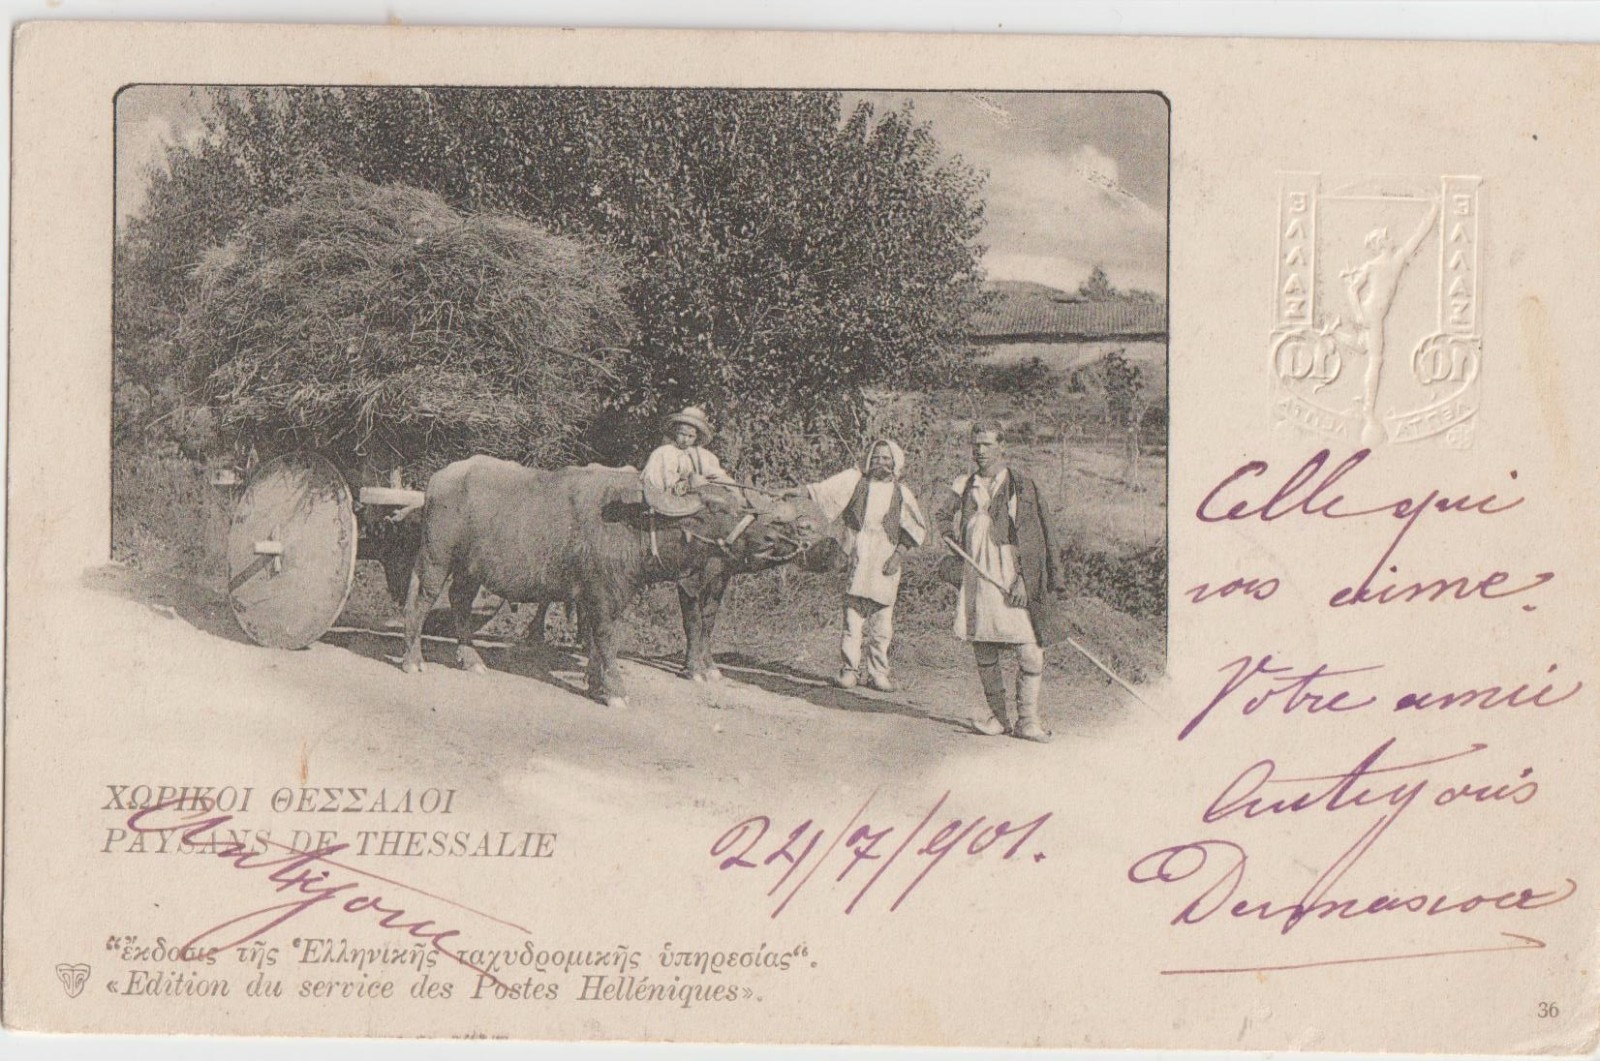 ΕΛΛΑΣ
ΕΛΛΑΣ
Celle qui
vous aime.
Votre amie
Antigonis
ΧΩΡΙΚΟΙ ΘΕΣΣΑΛΟΙ
PAYSANS DE THESSALIE
24/7/901.
Antigone
“ἔκδοσις τῆς Ἑλληνικῆς ταχυδρομικῆς ὑπηρεσίας“.
«Edition du service des Postes Helléniques».
36